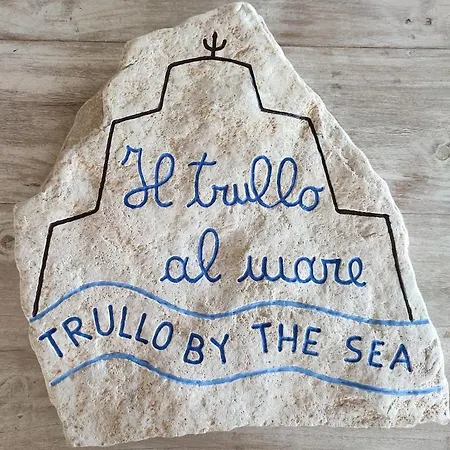 Il trullo
al mare
TRULLO BY THE SEA